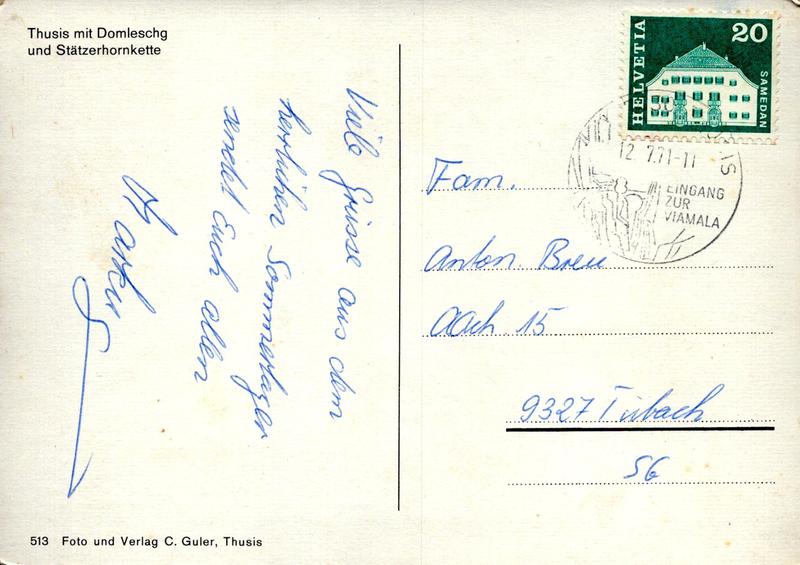 Thusis mit Domleschg
und Stätzerhornkette
Viele Grüsse aus dem
herrlichen Sommerlager
sendet Euch allen
Markus
513 Foto und Verlag C. Guler, Thusis
HELVETIA
20
SAMEDAN
12.7.71-11
EINGANG
ZUR
VIAMALA
Fam.
Anton Breu
Aach 15
9327 Tübach
SG